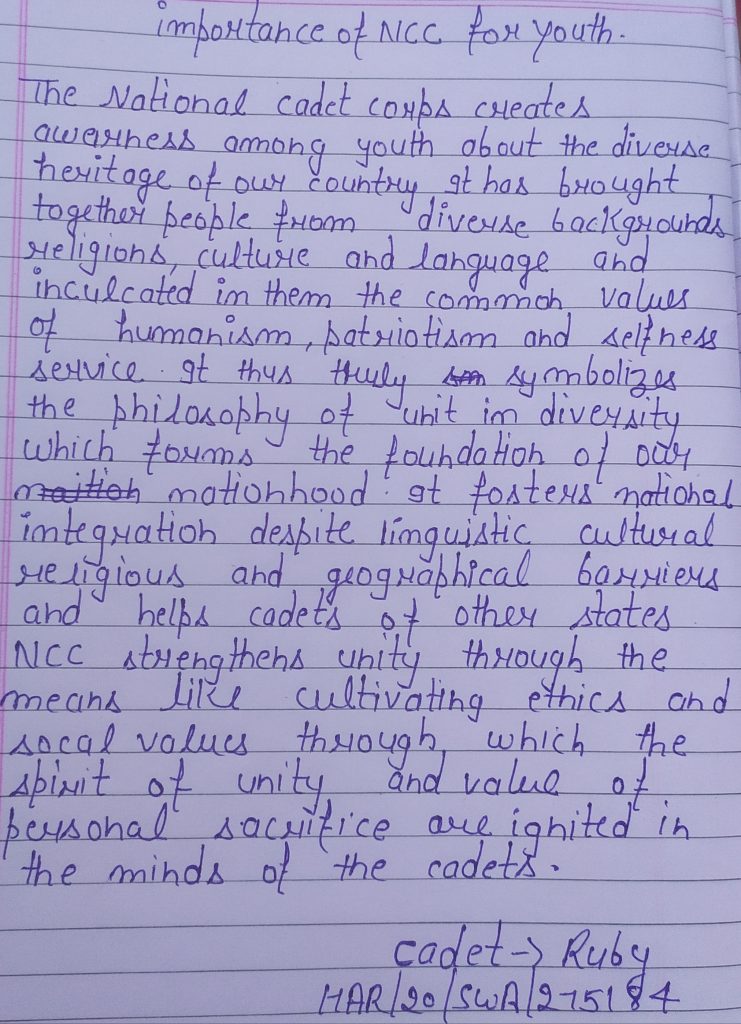 importance of NCC for youth.
The National cadet corps creates
awarness among youth about the diverse
heritage of our country It has brought
together people from diverse backgrounds,
religions, culture and language and
inculcated in them the common values
of humanism, patriotism and selfness
service. It thus truly symbolizes
the philosophy of unit in diversity
which forms the foundation of our
nationhood. It fosters national
integration despite linguistic cultural
religious and geographical barriers
and helps cadets of other states
NCC strengthens unity through the
means like cultivating ethics and
socal values through, which the
spirit of unity and value of
personal sacrifice are ignited in
the minds of the cadets.
cadet-> Ruby
HAR/20/SWA/275184